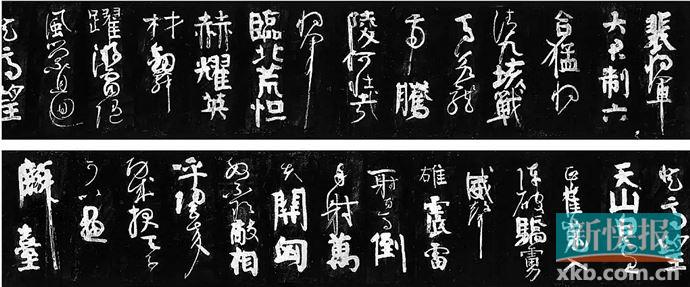 裴將軍
大君制六
合猛將
清九垓戰
馬若龍
虎騰
陵何壯哉
將軍
臨北荒恒
赫耀英
材劍舞
躍游電隨
風縈且迴
登高望
登高望
天山白雲
正崔嵬入
陣破驕虜
威聲
雄震雷
一射百馬倒
再射萬
夫開匈
奴不敢敵相
呼歸去來
功成報天子
可以畫
麟臺
新快报
xkb.com.cn